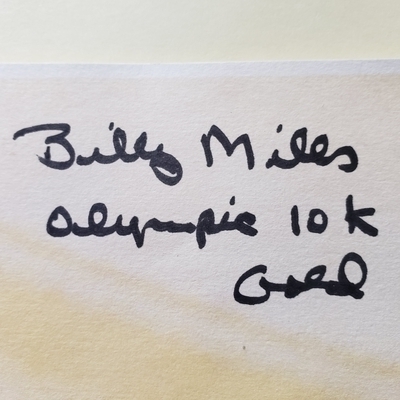 Billy Mills
Olympic 10k
Gold